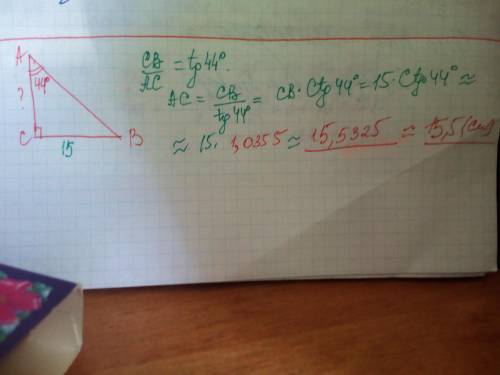 A
44°
?
C
15
B
CB/AC = tg 44°.
AC = CB/tg 44° = CB · Ctg 44° = 15 · Ctg 44° ≈
≈ 15 · 1,0355 ≈ 15,5325 ≈ 15,5 (см)